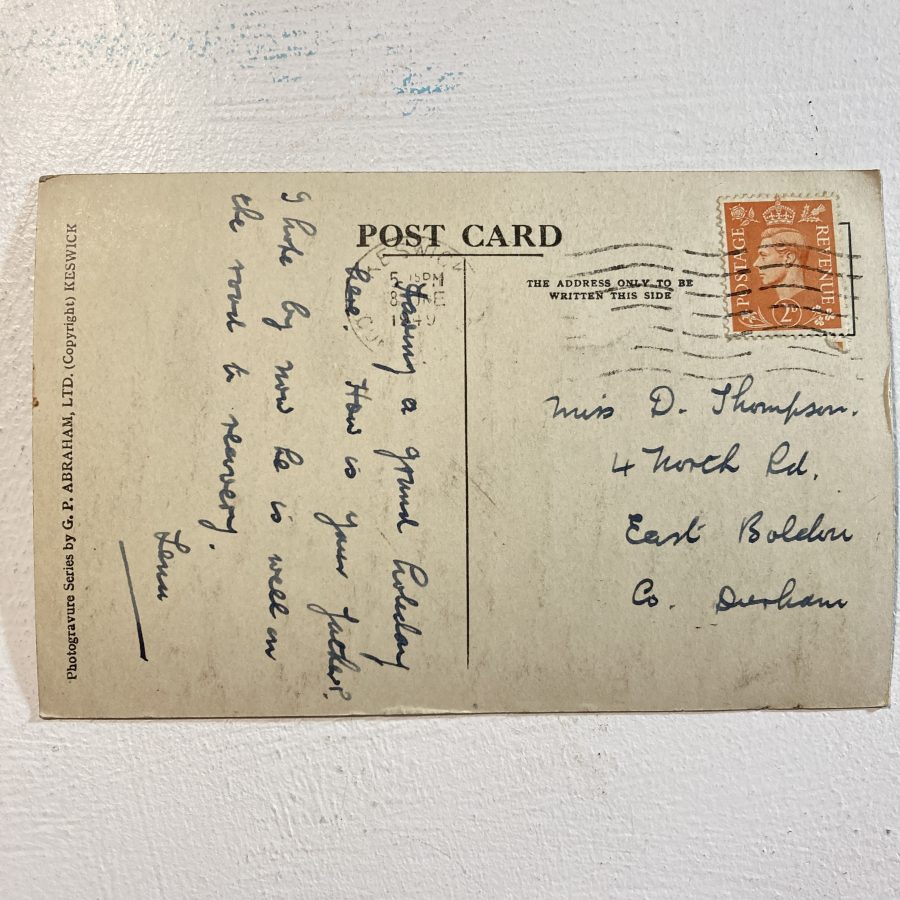 POST CARD
Photogravure Series by G. P. ABRAHAM, LTD. (Copyright) KESWICK
KESWICK
5 15PM
8
THE ADDRESS ONLY TO BE
WRITTEN THIS SIDE
POSTAGE
REVENUE
2D
Having a grand holiday
here. How is your father?
I hope by now he is well on
the road to recovery.
Miss D. Thompson.
4 North Rd.
East Boldon
Co. Durham